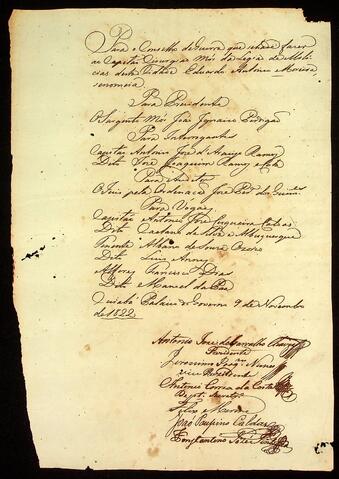 Para o Conselho de Guerra que se hade fazer
ao Capitão Cirurgião Mór da Legião de Mili-
cias desta Eduardo Antonio Moreira,
se nomeia
Para Presidente
O Sargento Mór João Ignacio
Para Interrogante
Capitão Antonio José d'Araujo Ramos
Dito José Joaquim Ramos e
Para Auditor
O Juis pela Ordenação José
Para Vogaes
Capitão Antonio José
Dito Caetano da Silva e Albuquerque
Tenente Alvaro de Souza Ozorio
Dito Luis
Alferes Francisco Dias
Dito Manoel da
Cuiabá Palacio do Governo 9 de Novembro
de 1822
Antonio José de Carvalho
Prezidente
Jeronimo Joaqᵐ Nunes
vice Prezidente
Antonio Correa da Costa
Dept. Secretº
Felis
João Poupino Caldas
Constantino José